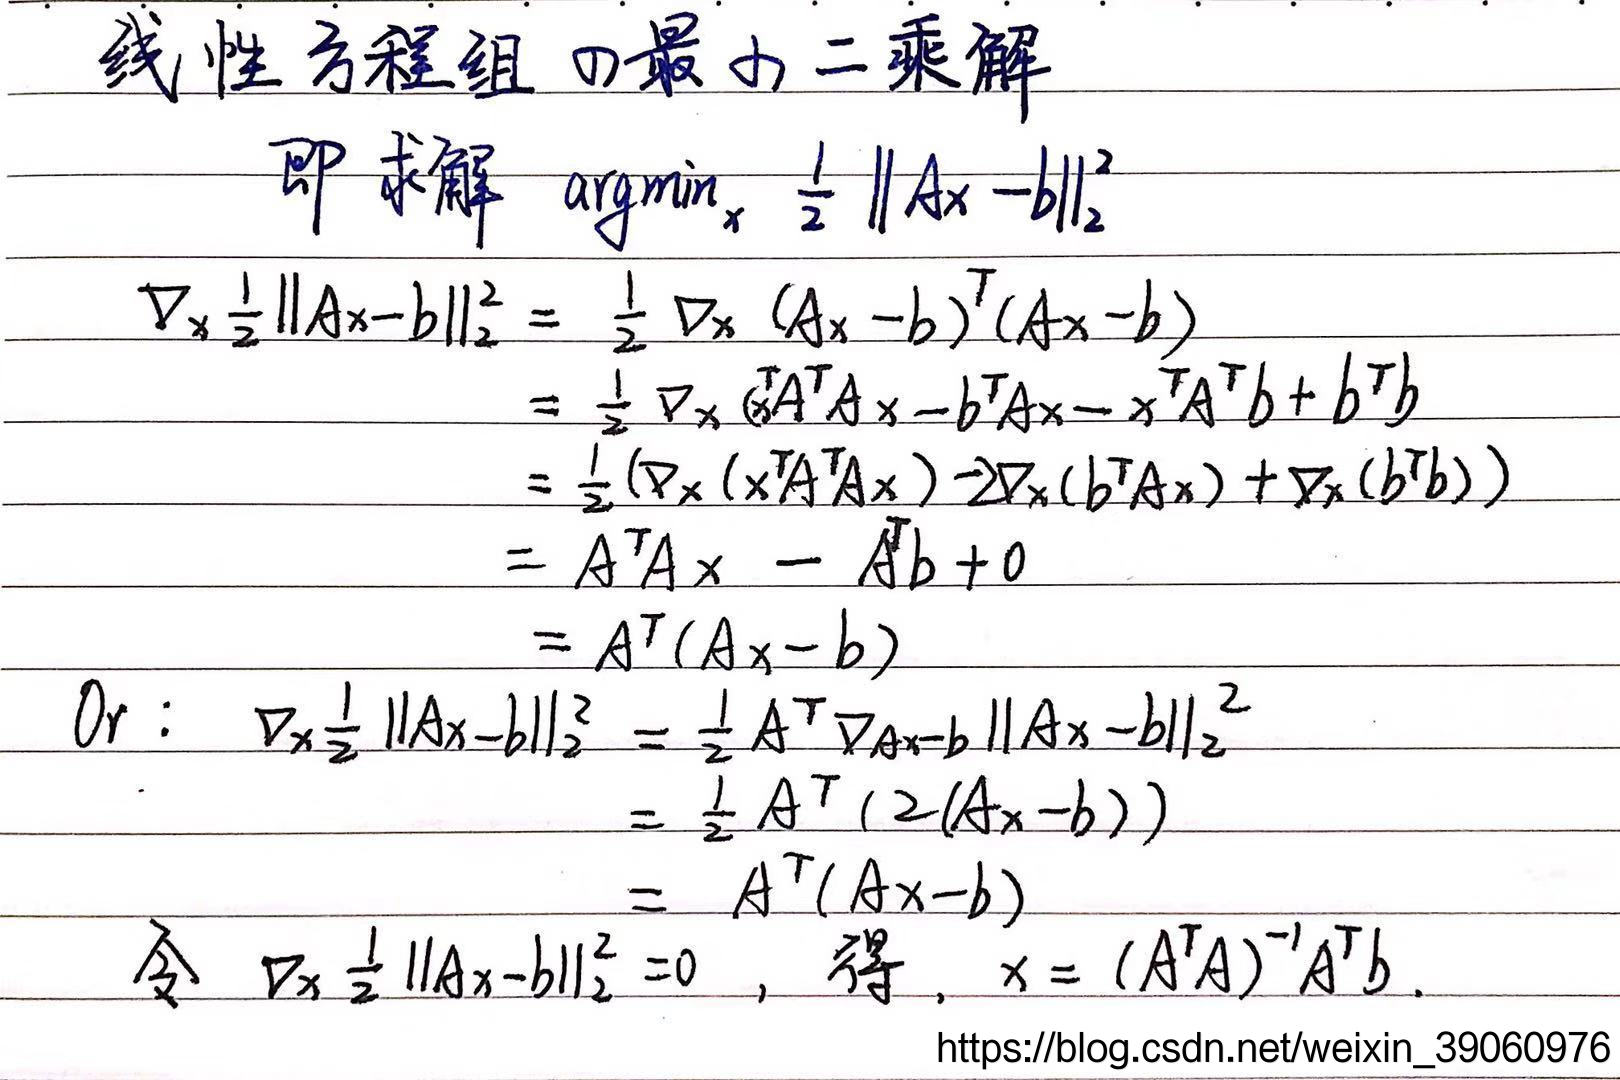 线性方程组の最小二乘解
即求解 argminₓ ½ ‖Ax-b‖₂²
∇ₓ ½‖Ax-b‖₂² = ½ ∇ₓ (Ax-b)ᵀ(Ax-b)
= ½ ∇ₓ (xᵀAᵀAx-bᵀAx-xᵀAᵀb+bᵀb
= ½(∇ₓ(xᵀAᵀAx)-2∇ₓ(bᵀAx)+∇ₓ(bᵀb))
= AᵀAx - Aᵀb+0
= Aᵀ(Ax-b)
Or: ∇ₓ½‖Ax-b‖₂² = ½ Aᵀ ∇_{Ax-b}‖Ax-b‖₂²
= ½ Aᵀ(2(Ax-b))
= Aᵀ(Ax-b)
令 ∇ₓ ½‖Ax-b‖₂²=0, 得, x = (AᵀA)⁻¹Aᵀb.
https://blog.csdn.net/weixin_39060976